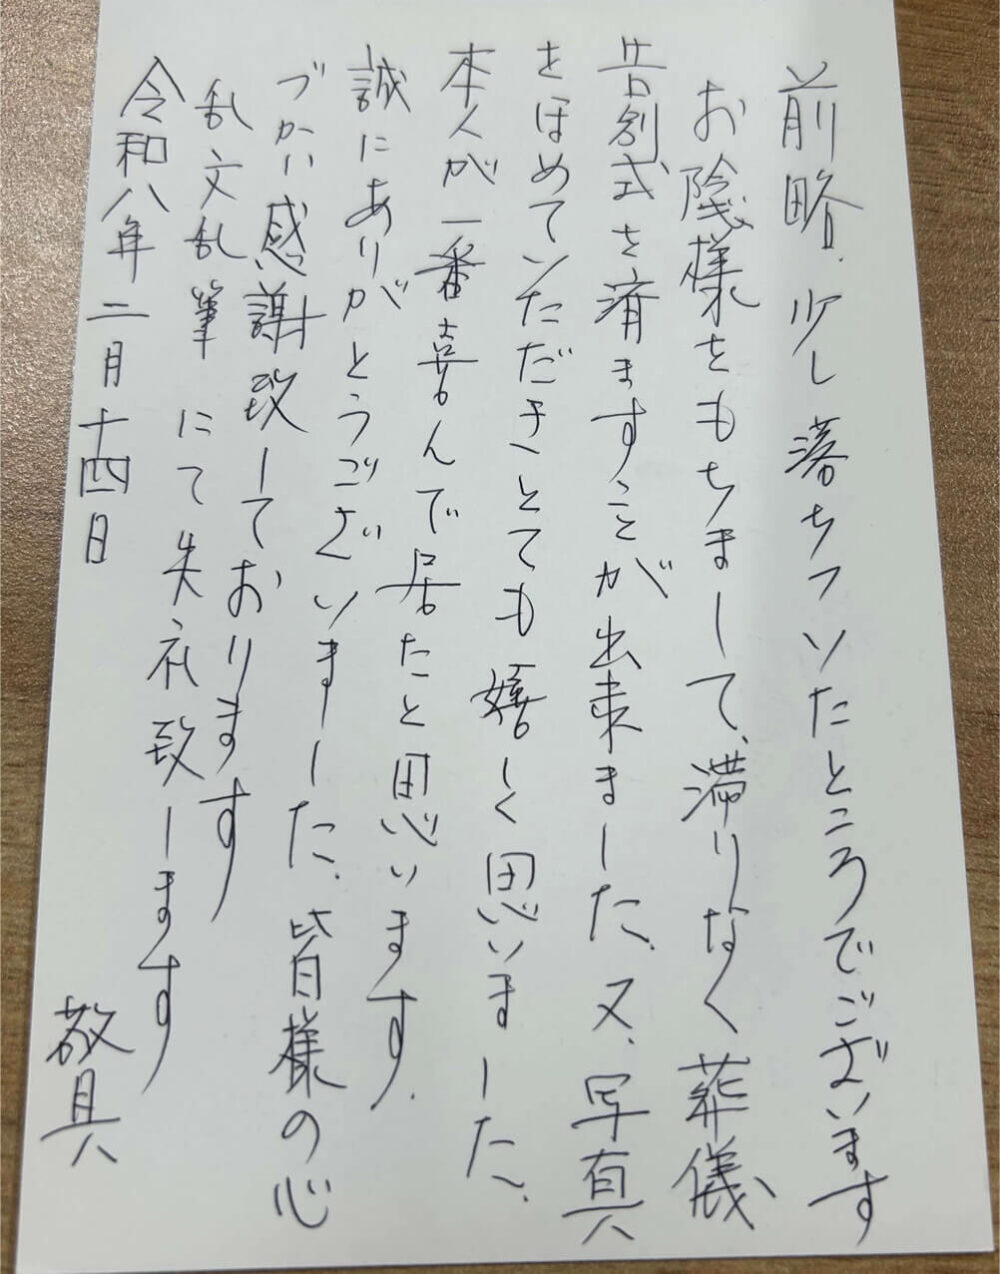 前略、少し落ちついたところでございます
お陰様をもちまして、滞りなく葬儀
告別式を済ますことが出来ました、又、写真
をほめていただきとても嬉しく思いました、
本人が一番喜んで居たと思います、
誠にありがとうございました、皆様の心
づかい感謝致しております
乱文乱筆にて失礼致します
令和八年二月十四日
敬具